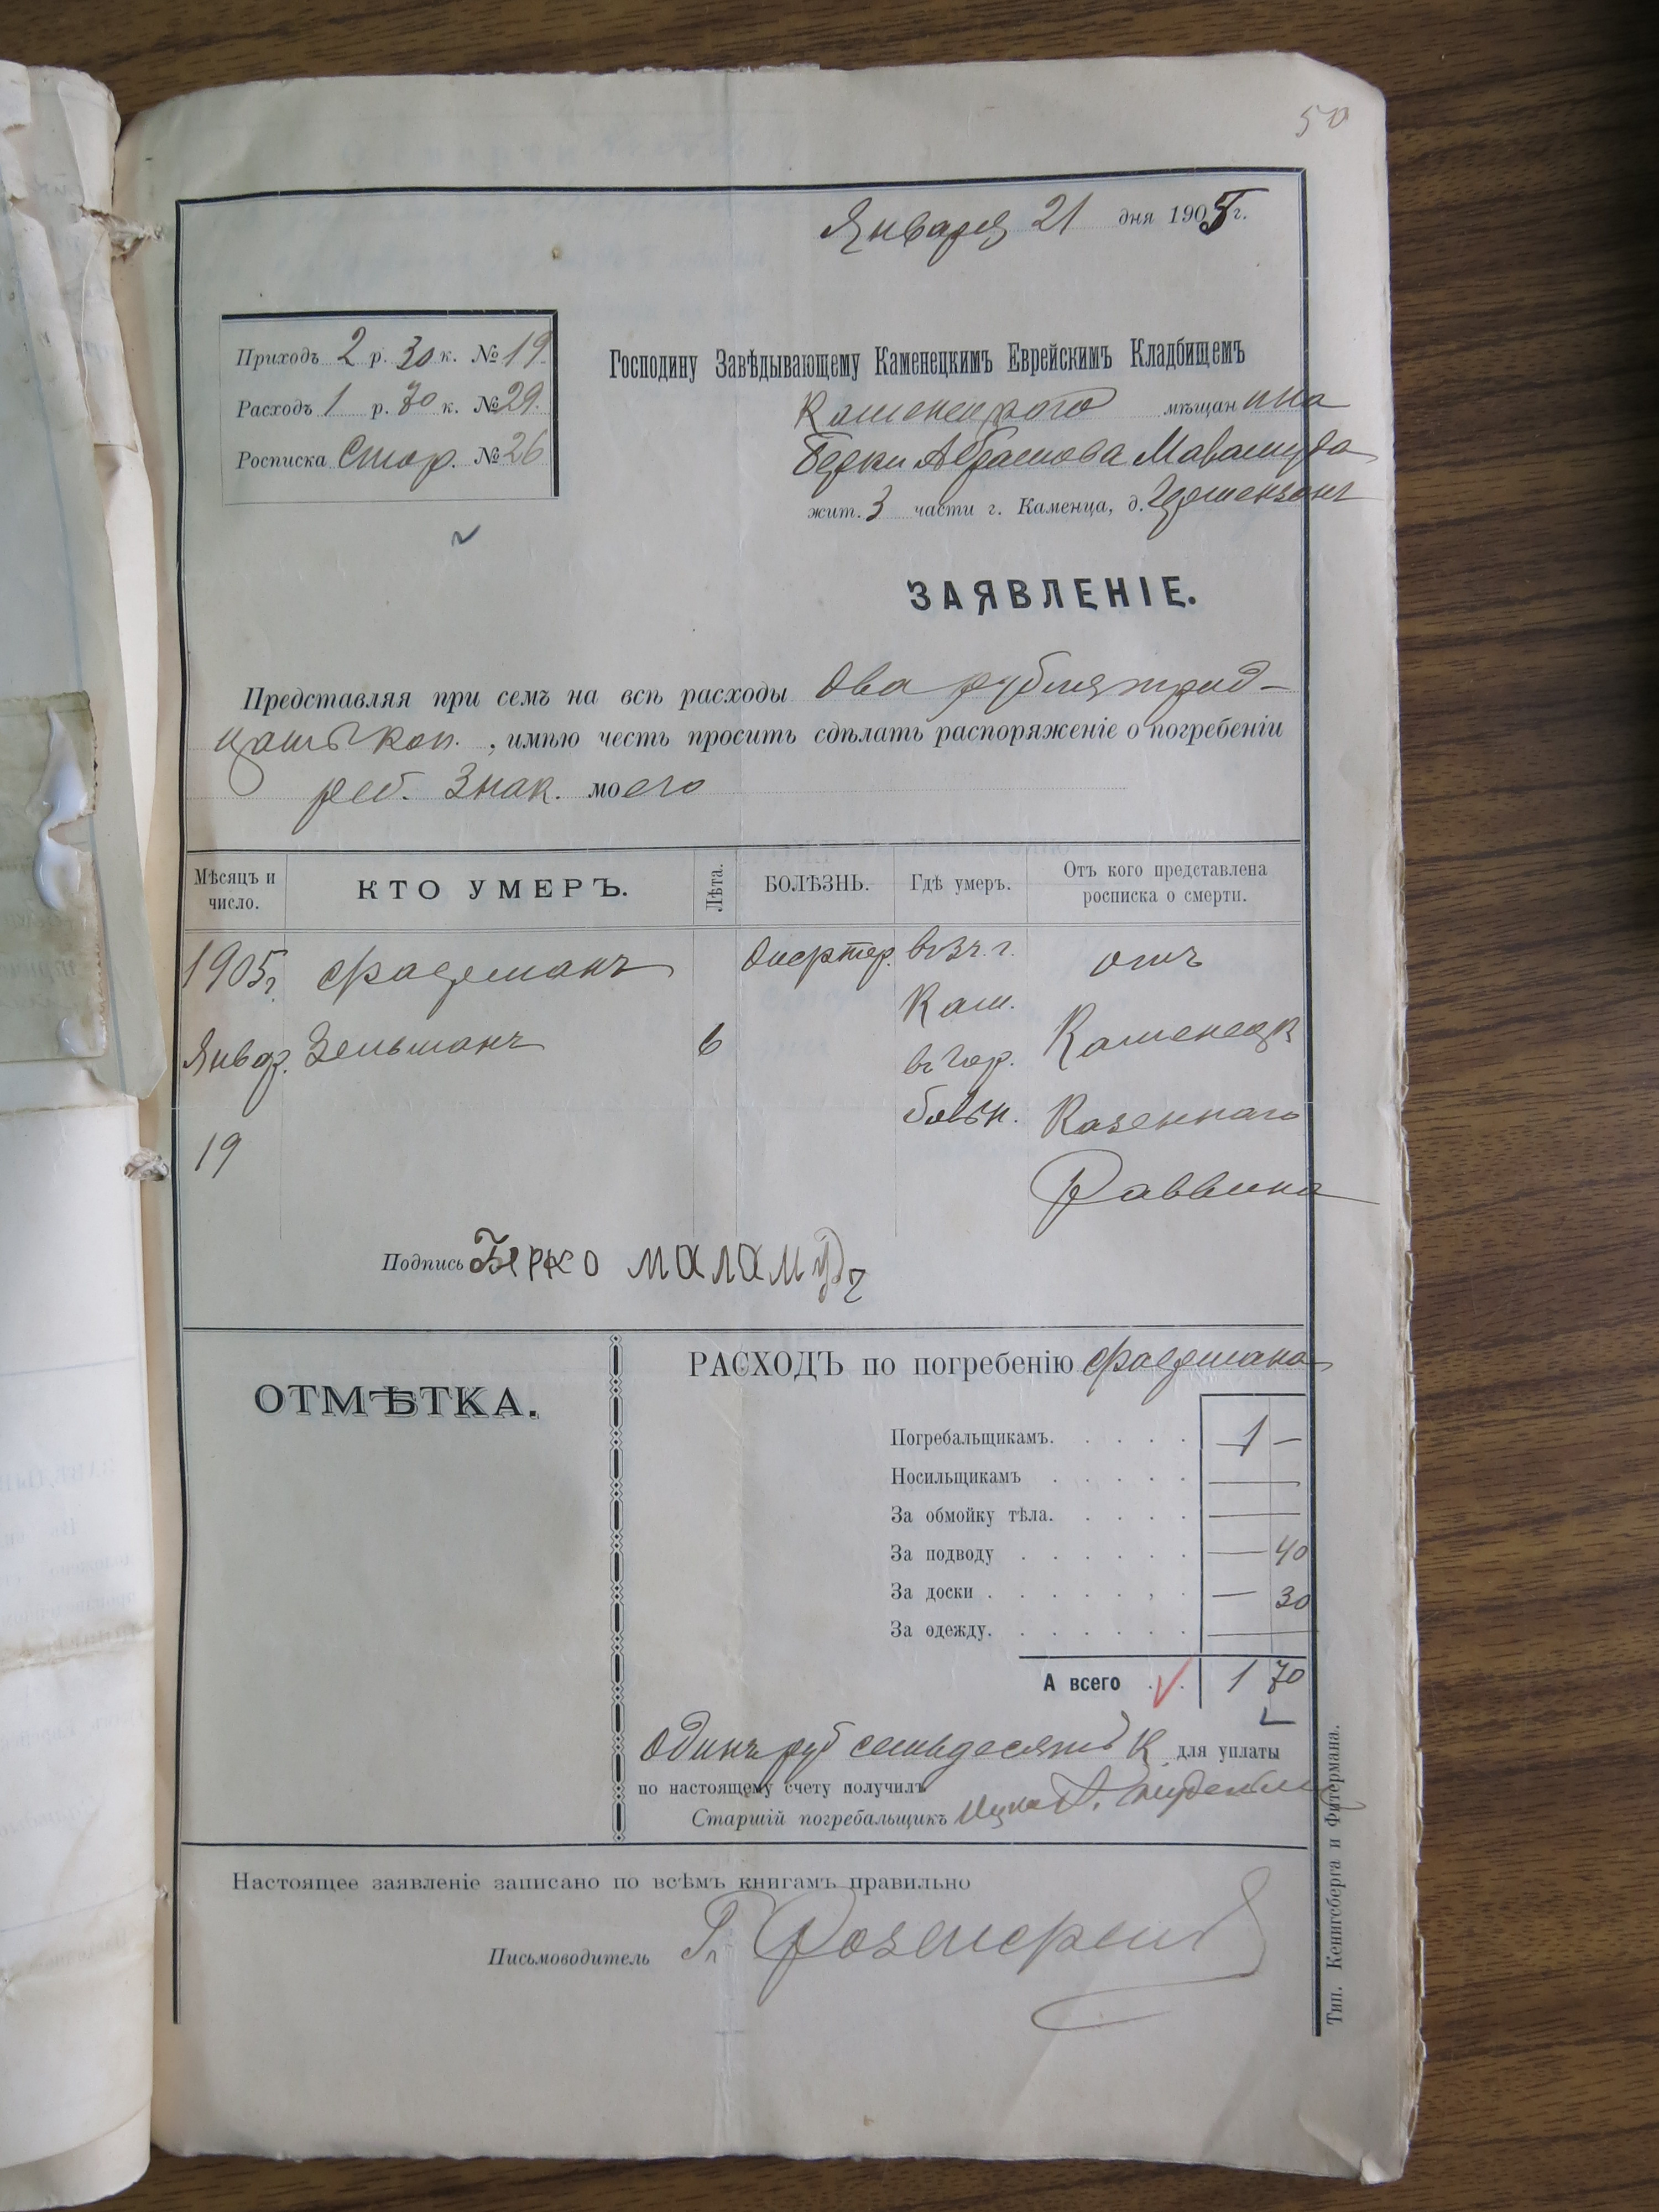 50
Января 21 дня 1905 г.
Приходъ 2 р. 30 к. № 19.
Расходъ 1 р. 70 к. № 29.
Росписка Стор. № 26
Господину Завѣдывающему Каменецкимъ Еврейскимъ Кладбищемъ
Каменецкого мѣщанина
Берки Абрамова Маламуда
жит. 3 части г. Каменца, д.
ЗАЯВЛЕНІЕ.
Представляя при семъ на всѣ расходы два рубля трид-
цать коп., имѣю честь просить сдѣлать распоряженіе о погребеніи
реб. знак. моего
Мѣсяцъ и число.
КТО УМЕРЪ.
Лѣта.
БОЛѢЗНЬ.
Гдѣ умеръ.
Отъ кого представлена росписка о смерти.
1905 г. Январ. 19
Зельманъ
6
въ 3 ч. г. Кам. въ гор. больн.
отъ Каменецк Казеннаго Раввина
Подпись Берко Маламудъ
ОТМѢТКА.
РАСХОДЪ по погребенію
Погребальщикамъ. 1 —
Носильщикамъ —
За обмойку тѣла. —
За подводу — 40
За доски — 30
За одежду. —
А всего 1 70
Одинъ руб семьдесятъ к для уплаты
по настоящему счету получилъ
Старшій погребальщикъ
Настоящее заявленіе записано по всѣмъ книгамъ правильно
Письмоводитель
Тип. Кенигсберга и Фитермана.